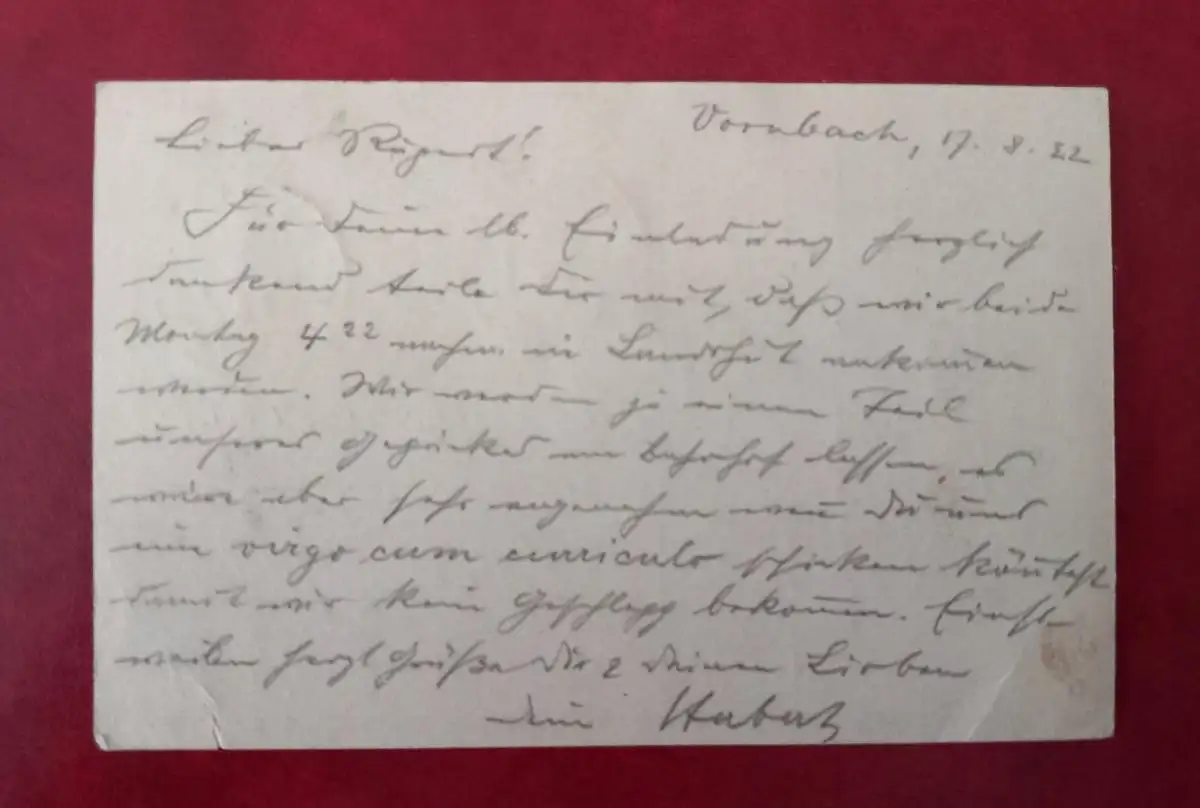 Vornbach, 17. 8. 22
Lieber Rupert!
Für Deine lb. Einladung herzlich
dankend teile Dir mit, daß wir beide
Montag 4 22 nachm. in Landshut ankommen
werden. Wir werden ja einen Teil
unseres Gepäckes am Bahnhof lassen, es
wäre aber sehr angenehm wenn Du uns
eine virgo cum curriculo schicken könntest
damit wir kein Geschlepp bekommen. Einst-
weilen herzl Grüße Dir & Deinen Lieben
Dein